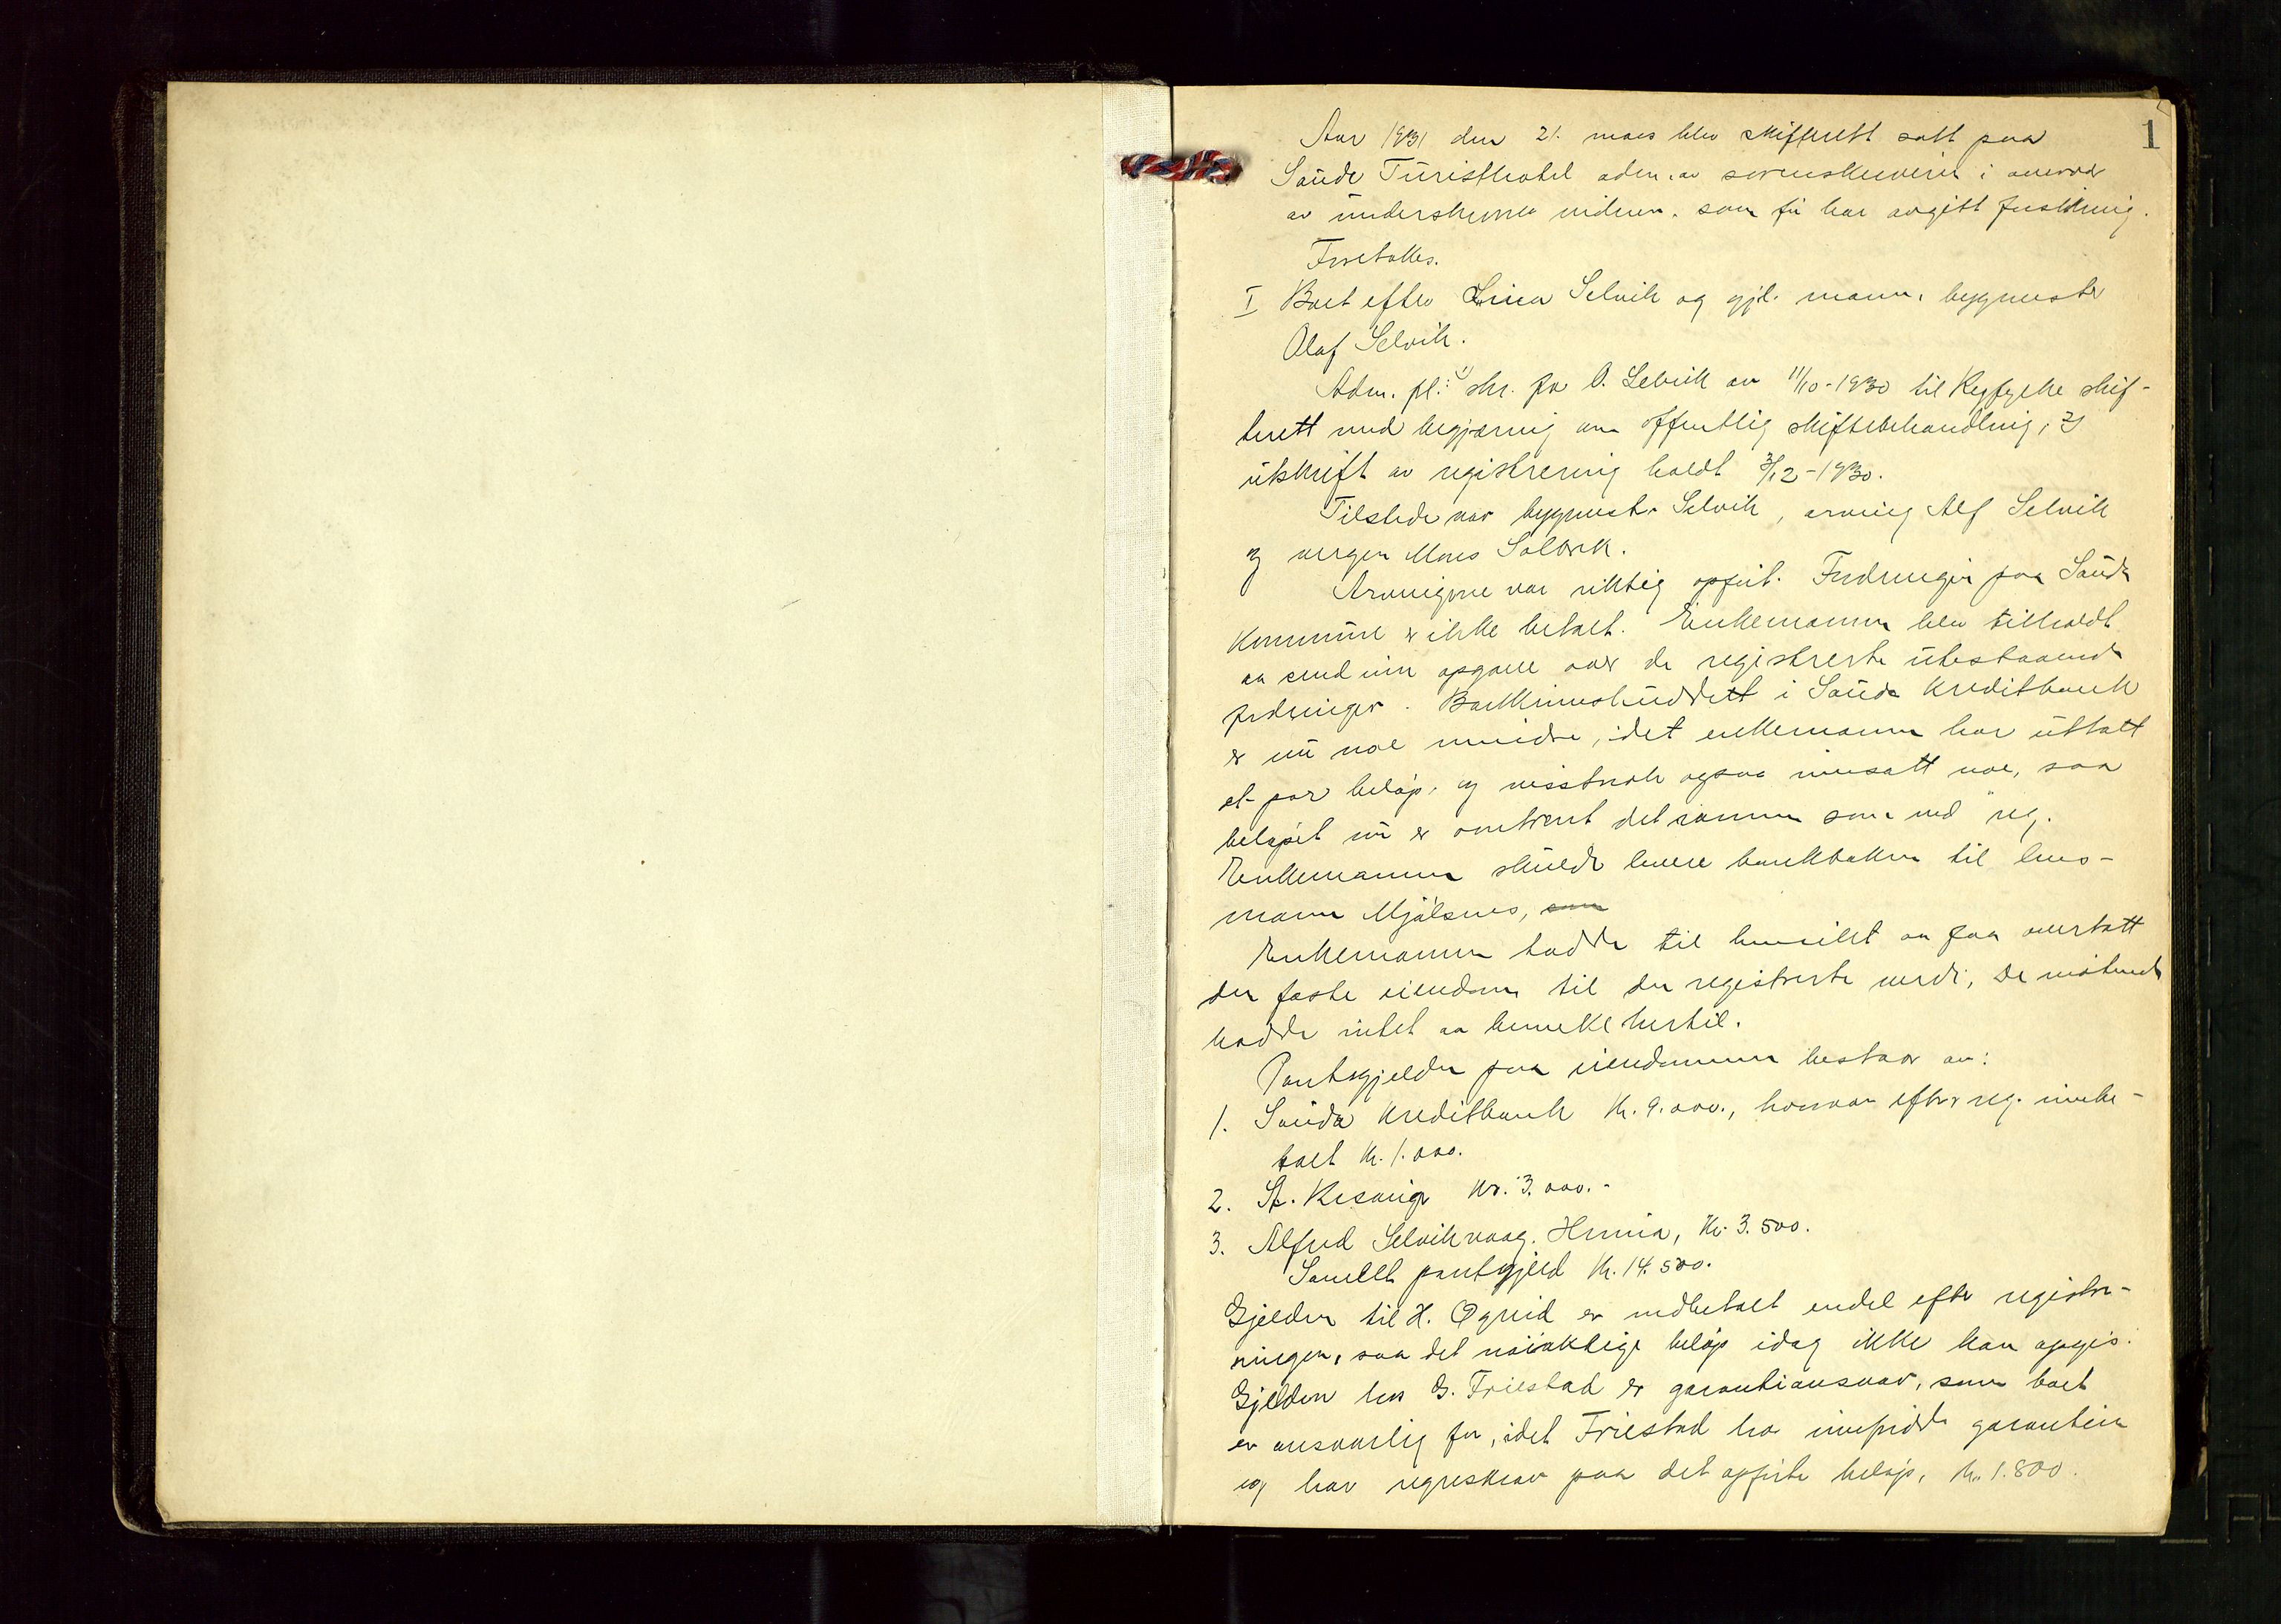 1
Aar 1931 den 21. mars blev skifterett satt paa
Sauda Turisthotel adm. av sorenskriveren i nærvær
av underskrevne vidner, som før har avgitt forsikring.
Foretokes.
I Boet efter Lina Selvik og gjl. mann, bygmester
Olaf Selvik.
Adm. fl.: 1) skr. fra O. Selvik av 11/10-1930 til Ryfylke skif-
terett med begjæring om offentlig skiftebehandling, 2)
utskrift av registrering holdt 3/12-1930.
Tilstede var bygmestr. Selvik, arving Alf Selvik
og vergen Mons Solbrek.
Arvingene var riktig opført. Fordringen paa Sauda
kommune er ikke betalt. Enkemannen blev tilholdt
aa sende inn opgave over de registrerte utestaaende
fordringer. Bankinnskuddet i Sauda Kreditbank
er nu noe mindre, idet enkemannen har uttatt
et par beløp, og visstnok ogsaa innsatt noe, saa
beløpet nu er omtrent det samme som ved reg.
Enkemannen skulde levere bankboken til lens-
mann Mjølsnes, som
Enkemannen hadde til hensikt aa faa overtatt
den faste eiendom til den registrerte verdi. De møtende
hadde intet aa bemerke hertil.
Pantegjelden paa eiendommen bestaar av:
1. Sauda Kreditbank Kr. 9.000., hvorav efter reg. innbe-
talt Kr. 1.000.
2. St. Risvig Kr. 3.000.-
3. Alfred Selvikvaag, Hervia, Kr. 3.500.
Samlet pantegjeld Kr. 14.500.
Gjelden til H. Øgreid er nedbetalt endel efter registre-
ringen, saa det nøiaktige beløp idag ikke kan opgis.
Gjelden hos G. Friestad er garantiansvar, som boet
er ansvarlig for, idet Friestad har innfridd garantien
og har regresskrav paa det opførte beløp, kr. 1.800.